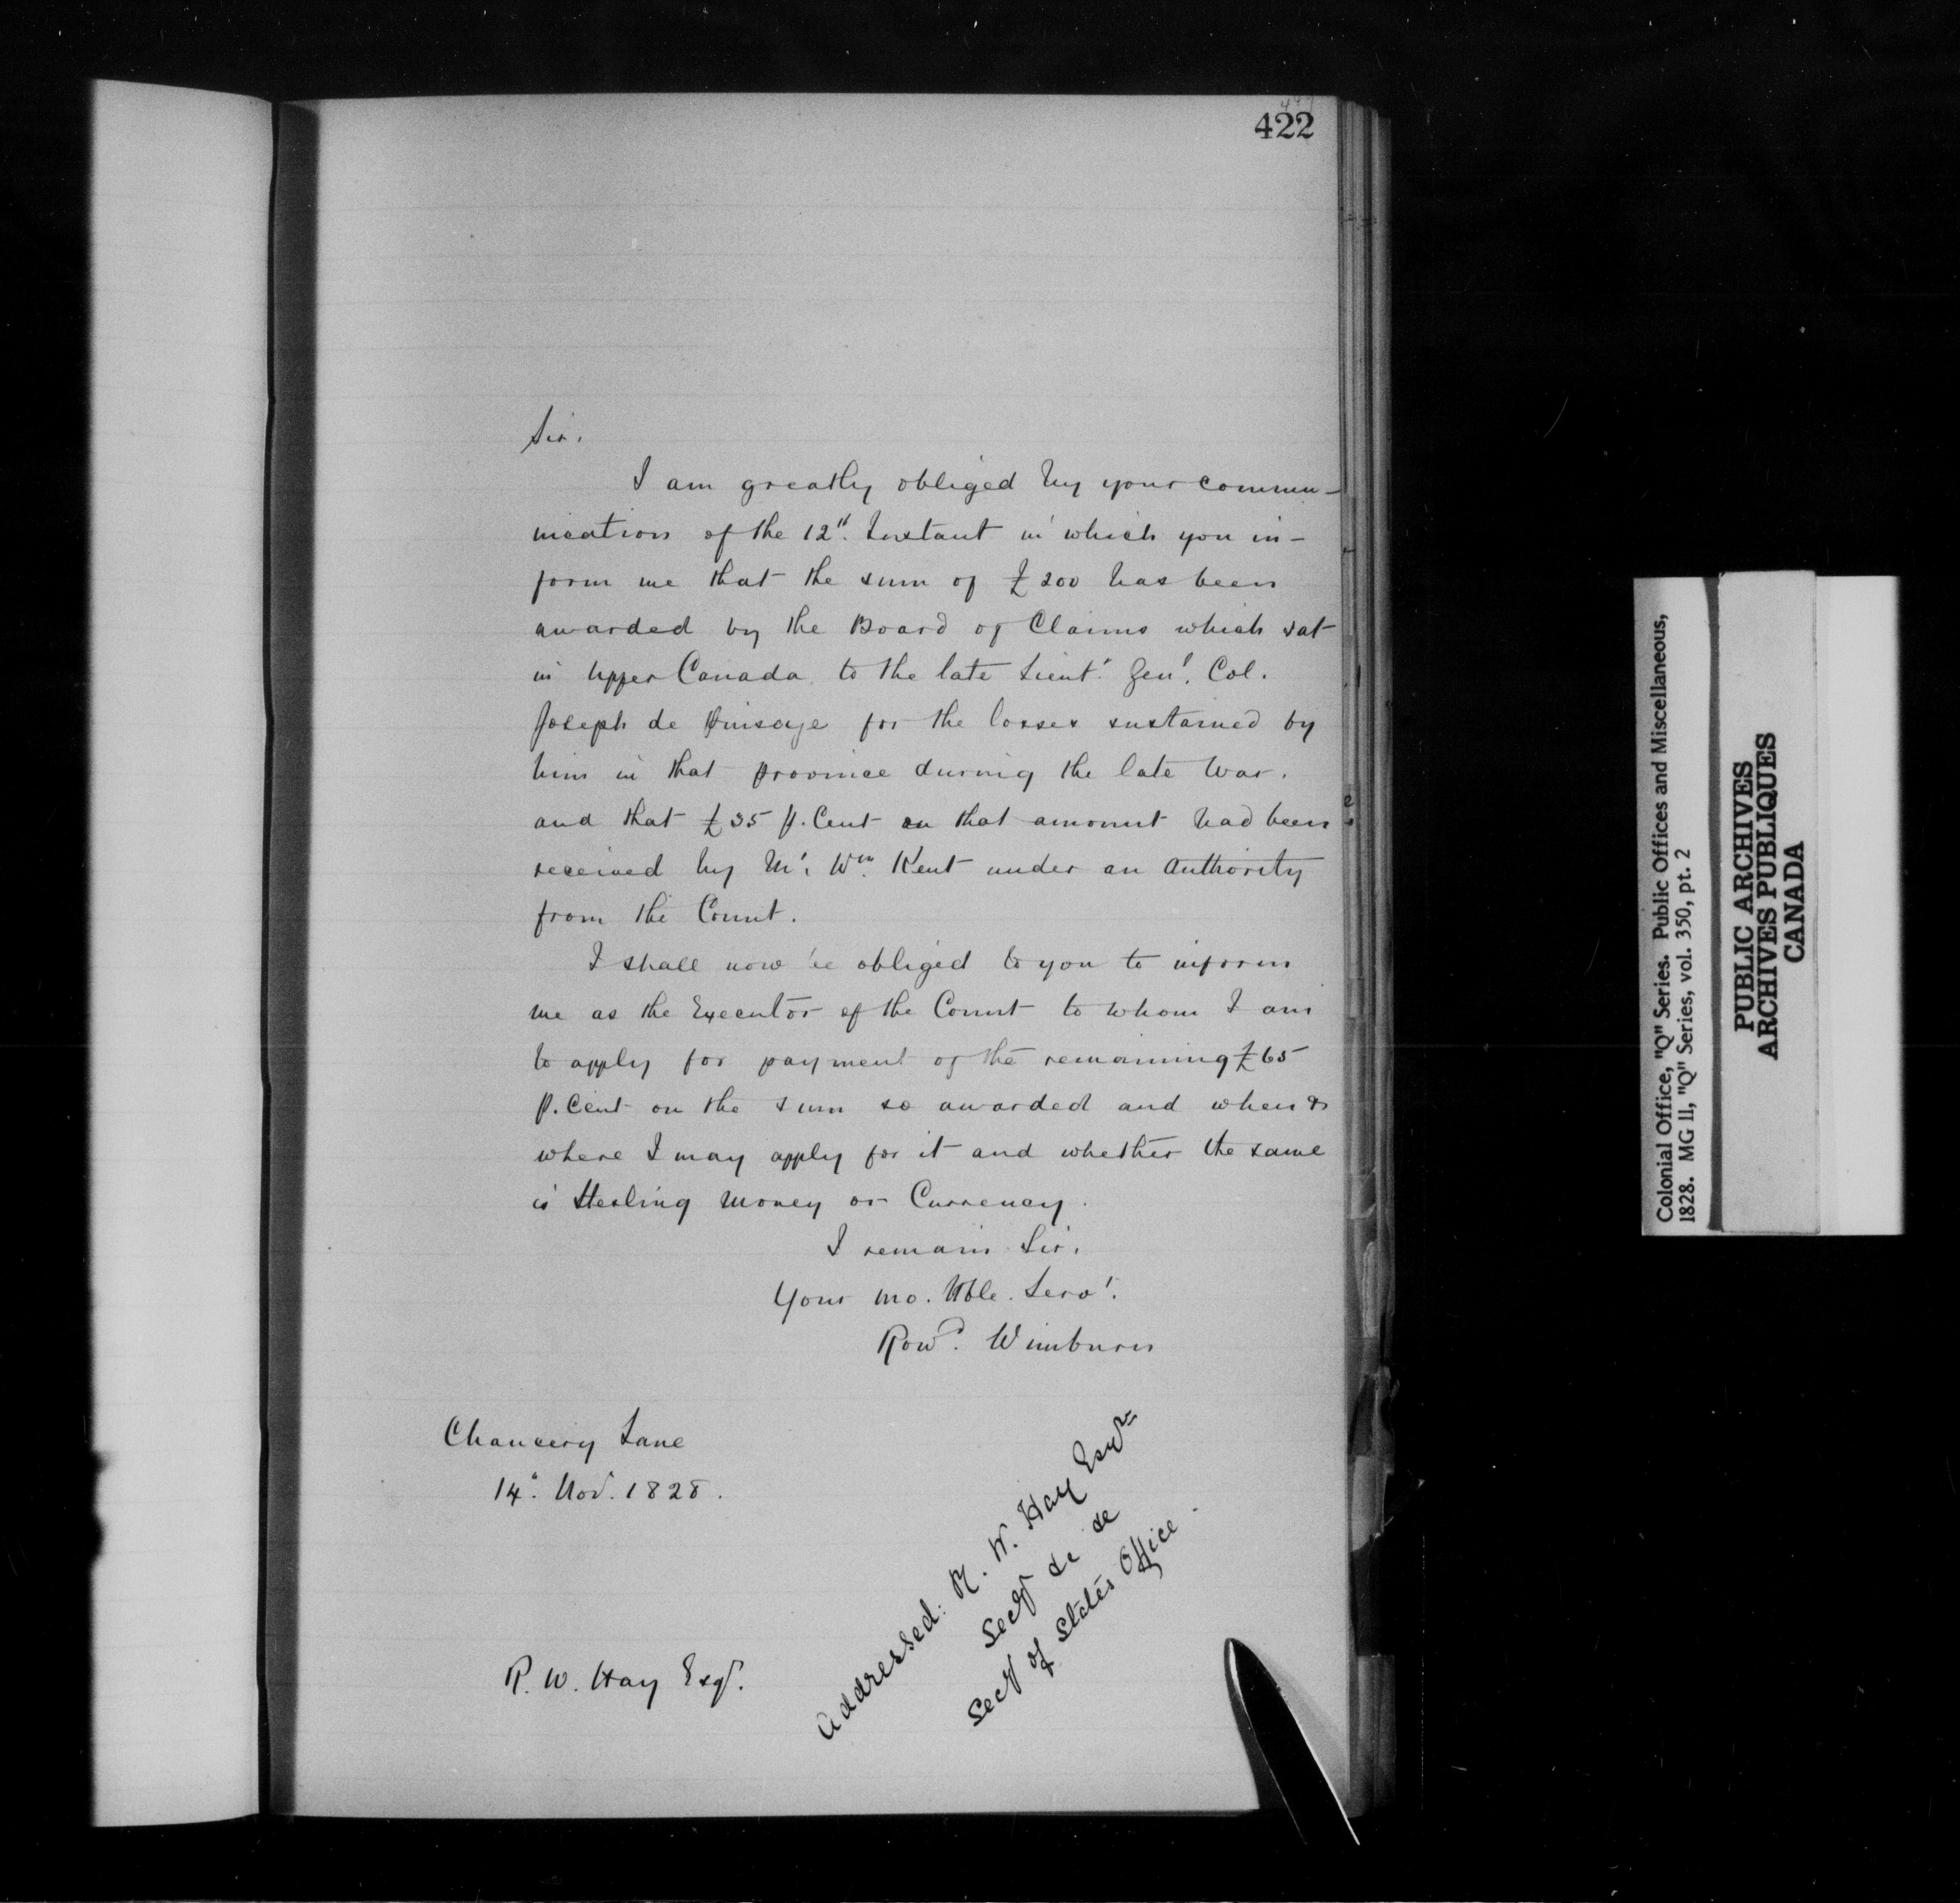 422
Sir.
I am greatly obliged by your commu-
nication of the 12th. Instant in which you in-
form me that the sum of £200 has been
awarded by the Board of Claims which sat
in Upper Canada to the late Lieut. Genl. Col.
Joseph de Puisaye for the losses sustained by
him in that province during the late War.
and that £35 p. Cent on that amount had been
received by Mr. Wm. Kent under an Authority
from the Count.
I shall now be obliged to you to inform
me as the Executor of the Count to whom I am
to apply for payment of the remaining £65
p. Cent on the sum so awarded and when &
where I may apply for it and whether the same
is Sterling Money or Currency.
I remain Sir.
Your mo. Hble. Servt.
Rowd. Wimburn
Chancery Lane
14th. Nov. 1828.
R. W. Hay Esqr.
Addressed: R. W. Hay Esqre
Secy &c &c
Secy of States Office
Colonial Office, "Q" Series. Public Offices and Miscellaneous,
1828. MG 11, "Q" Series, vol. 350, pt. 2
PUBLIC ARCHIVES
ARCHIVES PUBLIQUES
CANADA